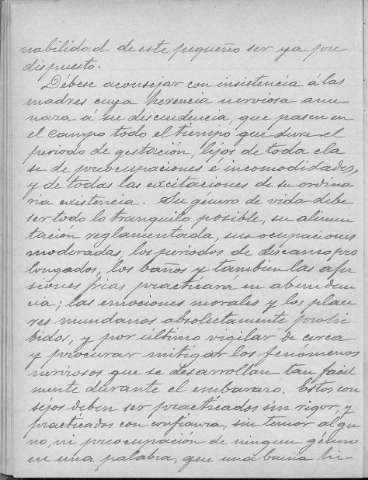 nabilidad de este pequeño ser ya pre
dispuesto.
Débese aconsejar con insistencia á las
madres cuya herencia nerviosa ame
nara á su descendencia, que pasen en
el campo todo el tiempo que dure el
periodo de gestación, lejos de toda cla
se de preocupaciones é incomodidades,
y de todas las excitaciones de su ordina
ria existencia. Su género de vida debe
ser todo lo tranquilo posible, su alimen
tación reglamentada, sus ocupaciones
moderadas, los periodos de descanso pro
longados, los baños y tambien las afu
siones frias practicara en abundan
cia; las emociones morales y los place
res mundanos absolutamente prohi
bidos, y por último vigilar de cerca
y procurar mitigar los fenómenos
nerviosos que se desarrollan tan facil
mente durante el embarazo. Estos con
sejos deben ser practicados sin rigor, y
practicados con confianza, sin temor algu
no, ni preocupación de ningun género
en una palabra, que una buena hi-